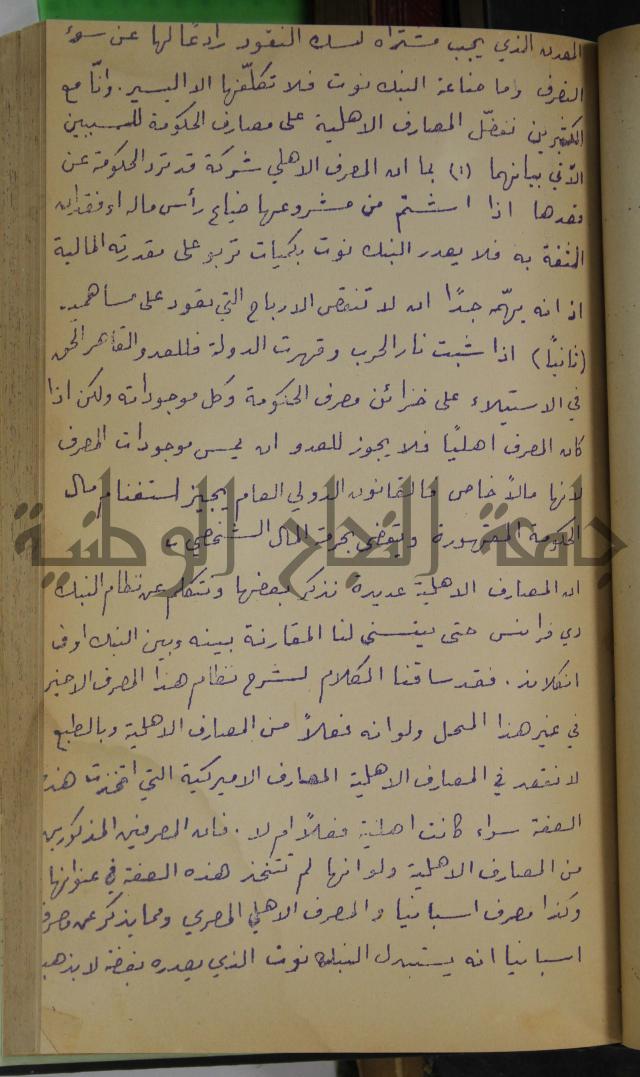 المعدن الذي يجب مشتراه لسك النقود رادعًا لها عن سوء
التصرف واما صناعة البنك نوت فلا تكلّفها الا اليسير. وانّا مع
الكثيرين نفضّل المصارف الاهلية على مصارف الحكومة للسببين
الآتي بيانهما (١) بما ان المصرف الاهلي شركة قد ترد الحكومة عن
قصدها اذا اشتمّ من مشروعها ضياع رأس ماله او فقدان
الثقة به فلا يصدر البنك نوت بكميات تربو على مقدرته المالية
اذ انه يهمّه جدًا ان لا تنقص الارباح التي تعود على مساهميه.
(ثانيًا) اذا شبت نار الحرب وقهرت الدولة فللعدو القاهر الحق
في الاستيلاء على خزائن مصرف الحكومة وكل موجوداته ولكن اذا
كان المصرف اهليًا فلا يجوز للعدو ان يمس موجودات المصرف
لانها مالاً خاص فالقانون الدولي العام يجيز استغنام مال
الحكومة المقهورة ويقضي بحرمة المال الشخصي
ان المصارف الاهلية عديدة نذكر بعضها ونتكلم عن نظام البنك
دي فرانس حتى يتسنى لنا المقارنة بينه وبين البنك اوف
انكلاند. فقد ساقنا الكلام لشرح نظام هذا المصرف الاخير
في غير هذا المحل ولو انه فعلاً من المصارف الاهلية وبالطبع
لا نقصد في المصارف الاهلية المصارف الاميركية التي اتخذت هذه
الصفة سواء كانت اهلية فعلاً ام لا. فان المصرفين المذكورين
من المصارف الاهلية ولو انها لم تتخذ هذه الصفة في عنوانها
وكذا مصرف اسبانيا والمصرف الاهلي المصري ومما يذكر عن مصرف
اسبانيا انه يستبدل البنك نوت الذي يصدره بفضة لا بذهب
جامعة النجاح الوطنية